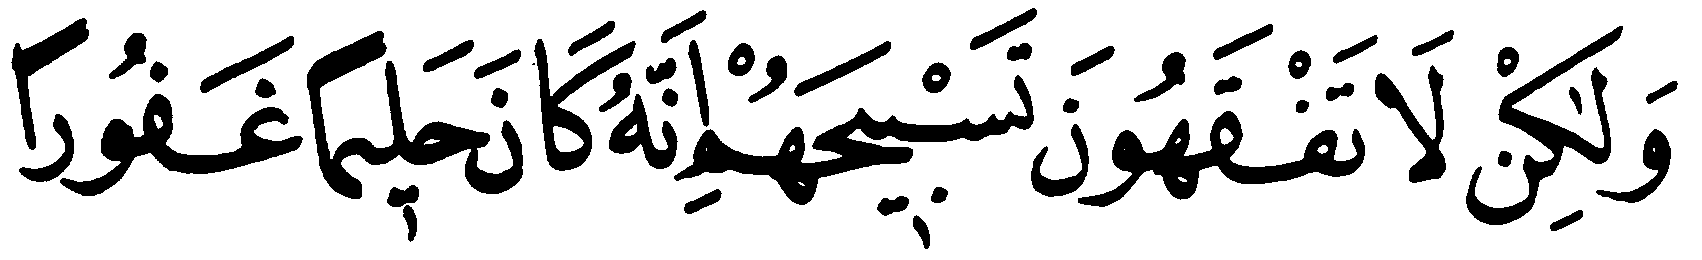 وَلٰكِنْ لَا تَفْقَهُونَ تَسْبٖيحَهُمْ اِنَّهُ كَانَ حَلٖيمًا غَفُورًا